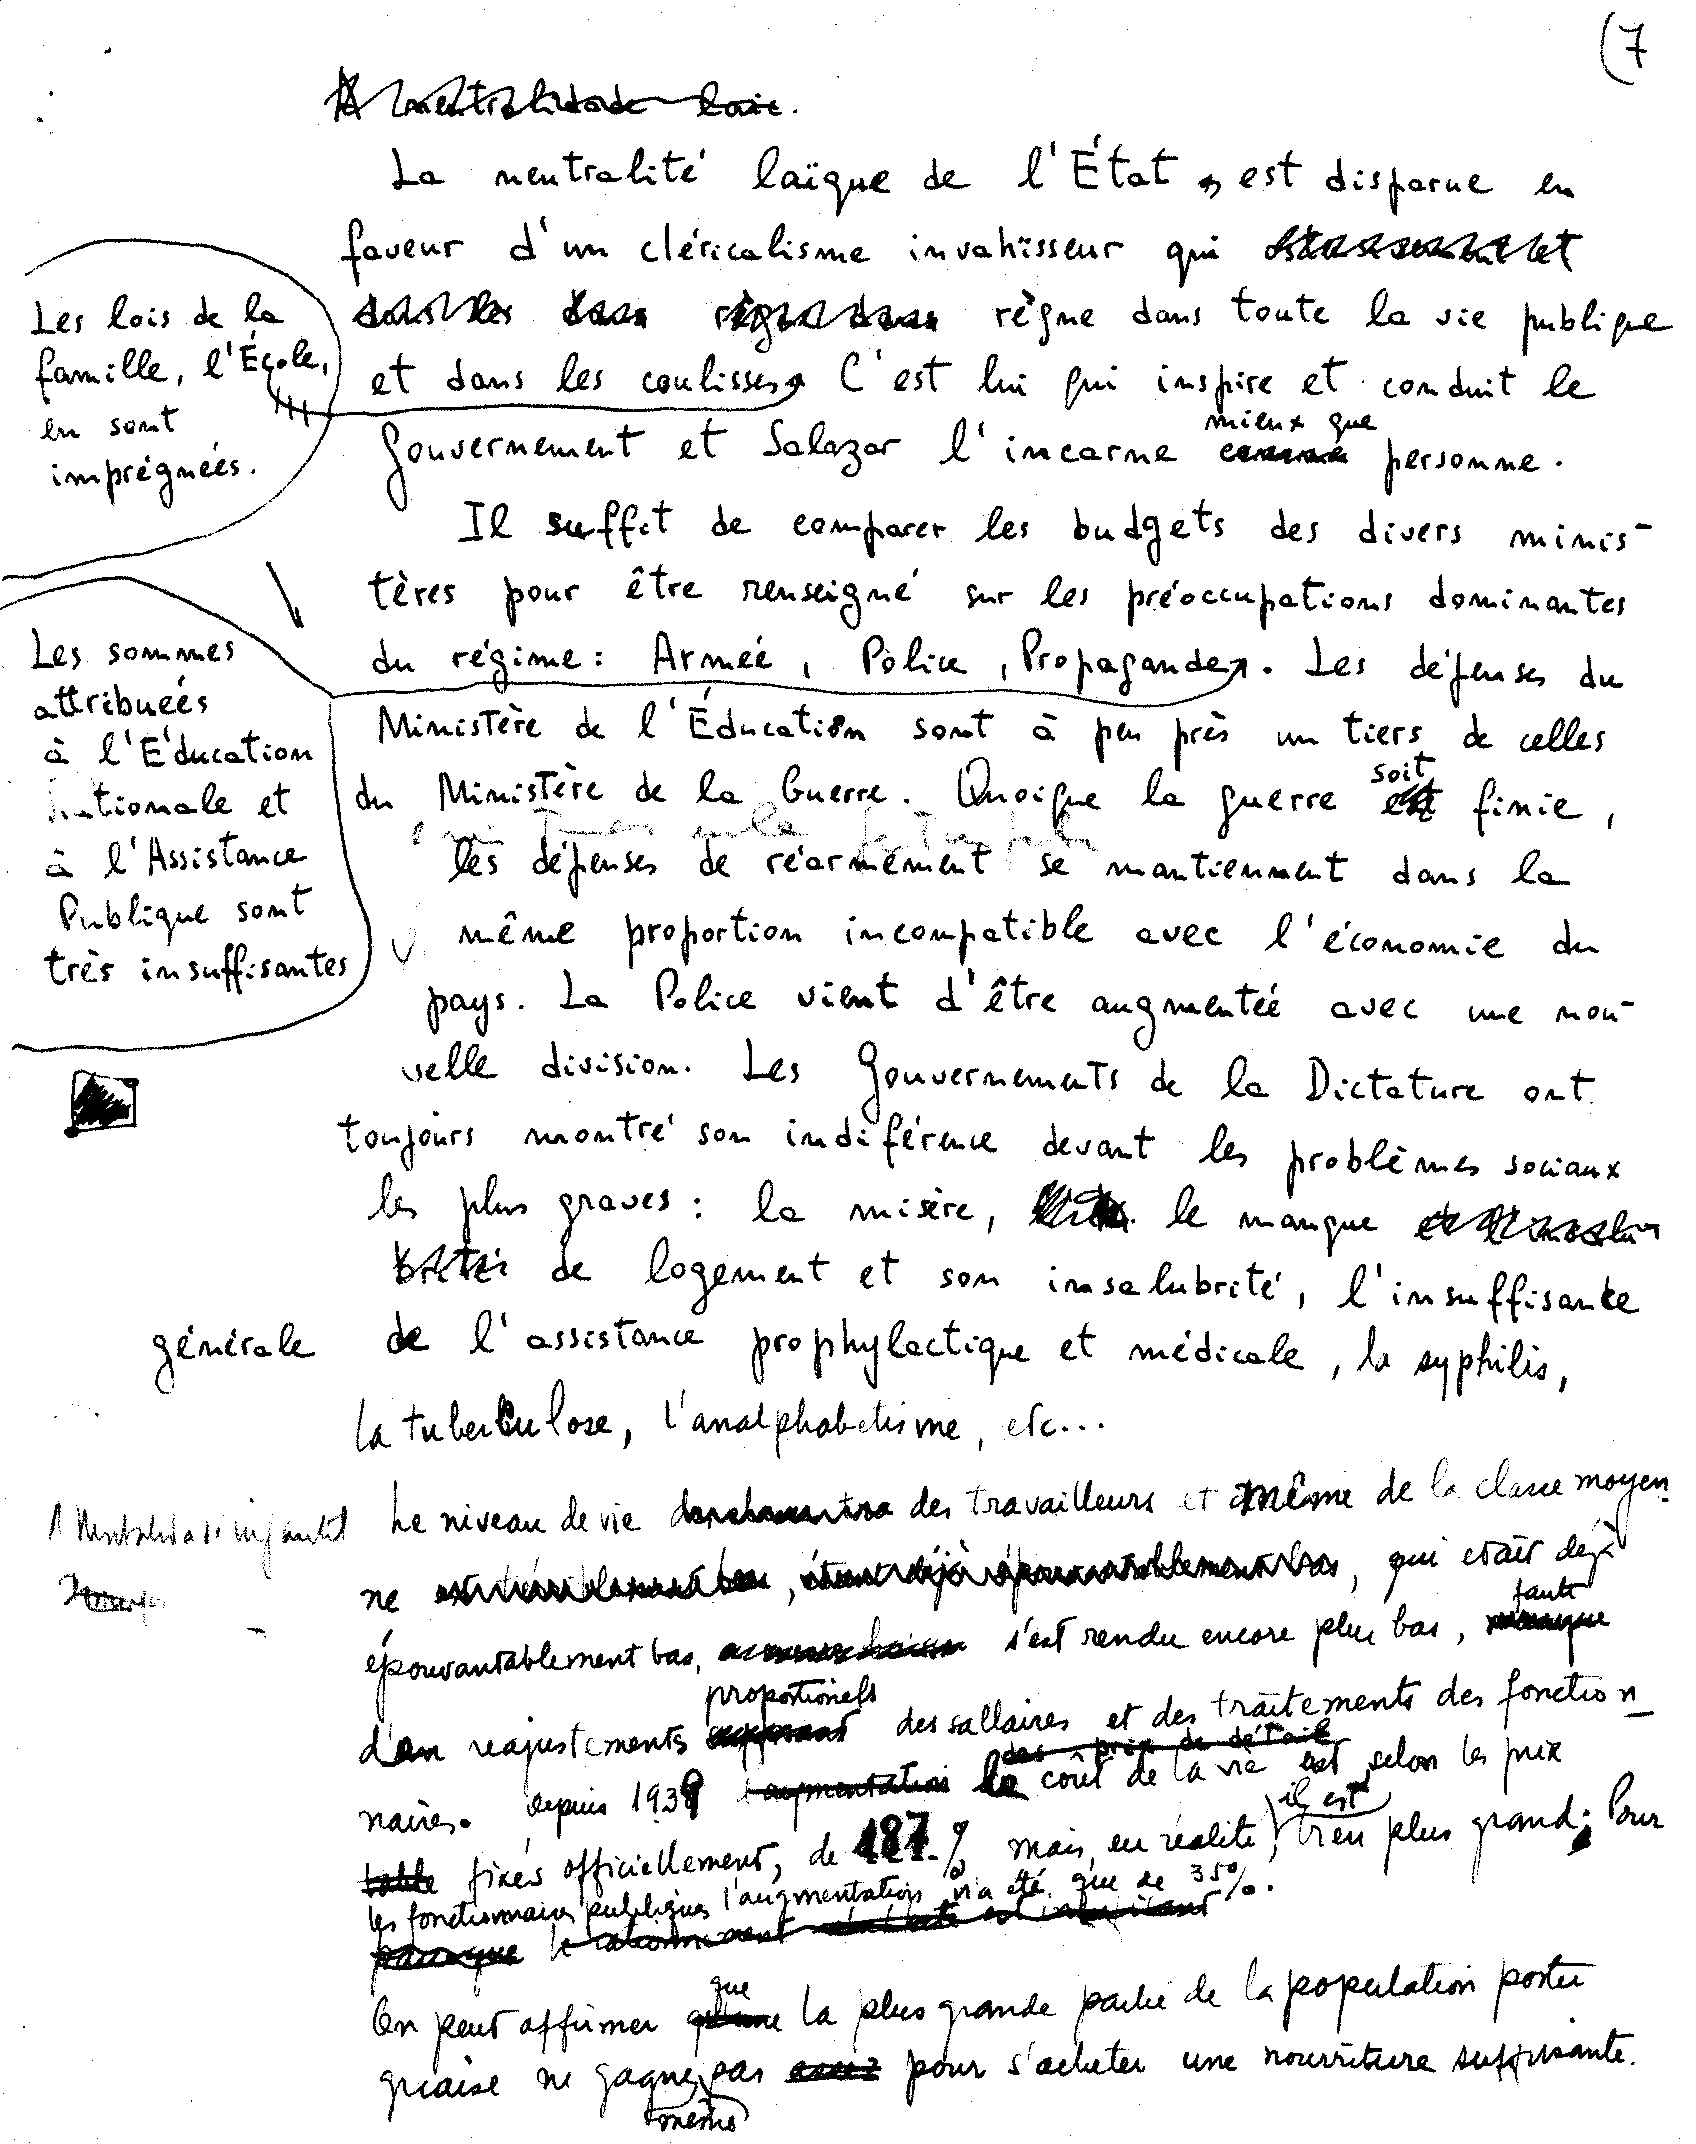 (7
La neutralité laïque de l'État, est disparue en
faveur d'un cléricalisme invahïsseur qui
règne dans toute la vie publique
et dans les coulisses. C'est lui qui inspire et conduit le
Gouvernement et Salazar l'incarne mieux que personne.
Les lois de la
famille, l'École,
en sont
imprégnées.
Il suffit de comparer les budgets des divers minis-
tères pour être renseigné sur les préoccupations dominantes
du régime: Armée, Police, Propagande. Les dépenses du
Les sommes
attribuées
à l'Éducation
Nationale et
à l'Assistance
Publique sont
très insuffisantes
Ministère de l'Éducation sont à peu près un tiers de celles
du Ministère de la Guerre. Quoique la guerre soit finie,
les dépenses de réarmement se mantiennent dans la
même proportion incompatible avec l'économie du
pays. La Police vient d'être augmentée avec une nou-
velle division. Les Gouvernements de la Dictature ont
toujours montré son indiférence devant les problèmes sociaux
les plus graves: la misère, le manque
de logement et son insalubrité, l'insuffisance
générale de l'assistance prophylactique et médicale, la syphilis,
la tuberculose, l'analphabetisme, etc...
Le niveau de vie des travailleurs et même de la classe moyen
ne, qui etait déjà
épouvantablement bas, s'est rendu encore plus bas, faute
d'un reajustements proportionels des sallaires et des traitements des fonction
naires. Depuis 1939 le coût de la vie est, selon les prix
fixés officiellement, de 187% mais, en réalité, il est bien plus grand; Pour
les fonctionnaires publiques l'augmentation n'a été que de 35%.
On peut affirmer que la plus grande partie de la population portu
guaise ne gagne même pas pour s'acheter une nourriture suffisante.